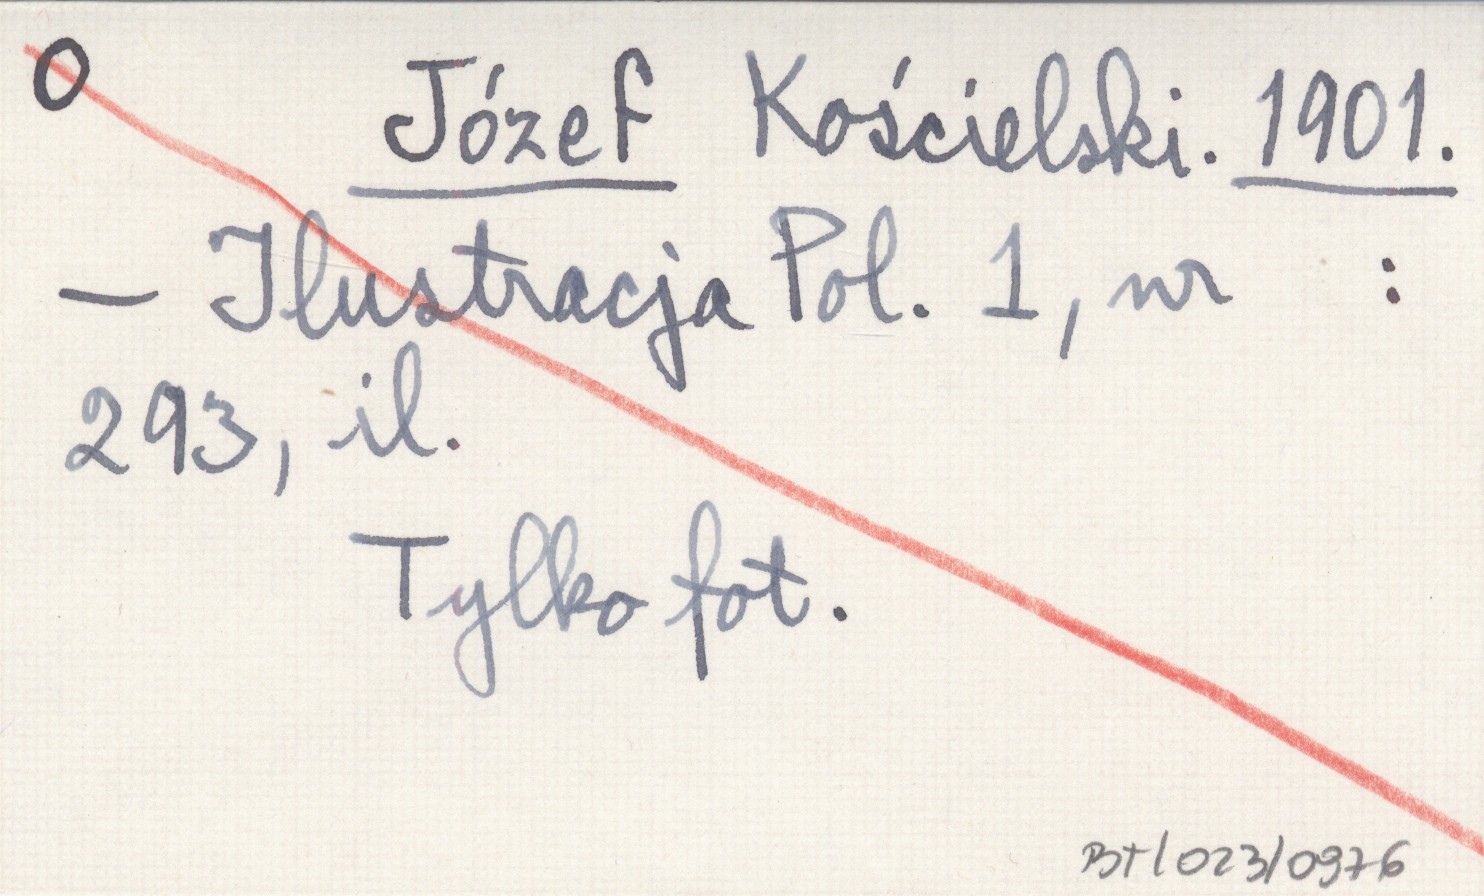 O Józef Kościelski. 1901.
— Ilustracja Pol. 1, nr :
293, il.
Tylko fot.
BT/023/0976